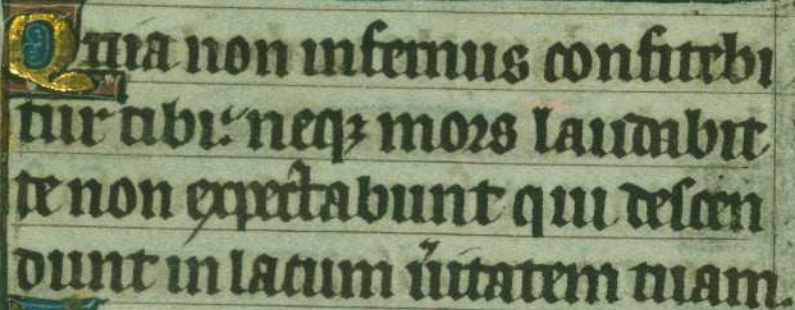 Quia non infernus confitebi
tur tibi: neqꝫ mors laudabit
te non expectabunt qui descen
dunt in lacum ùitatem tuam.